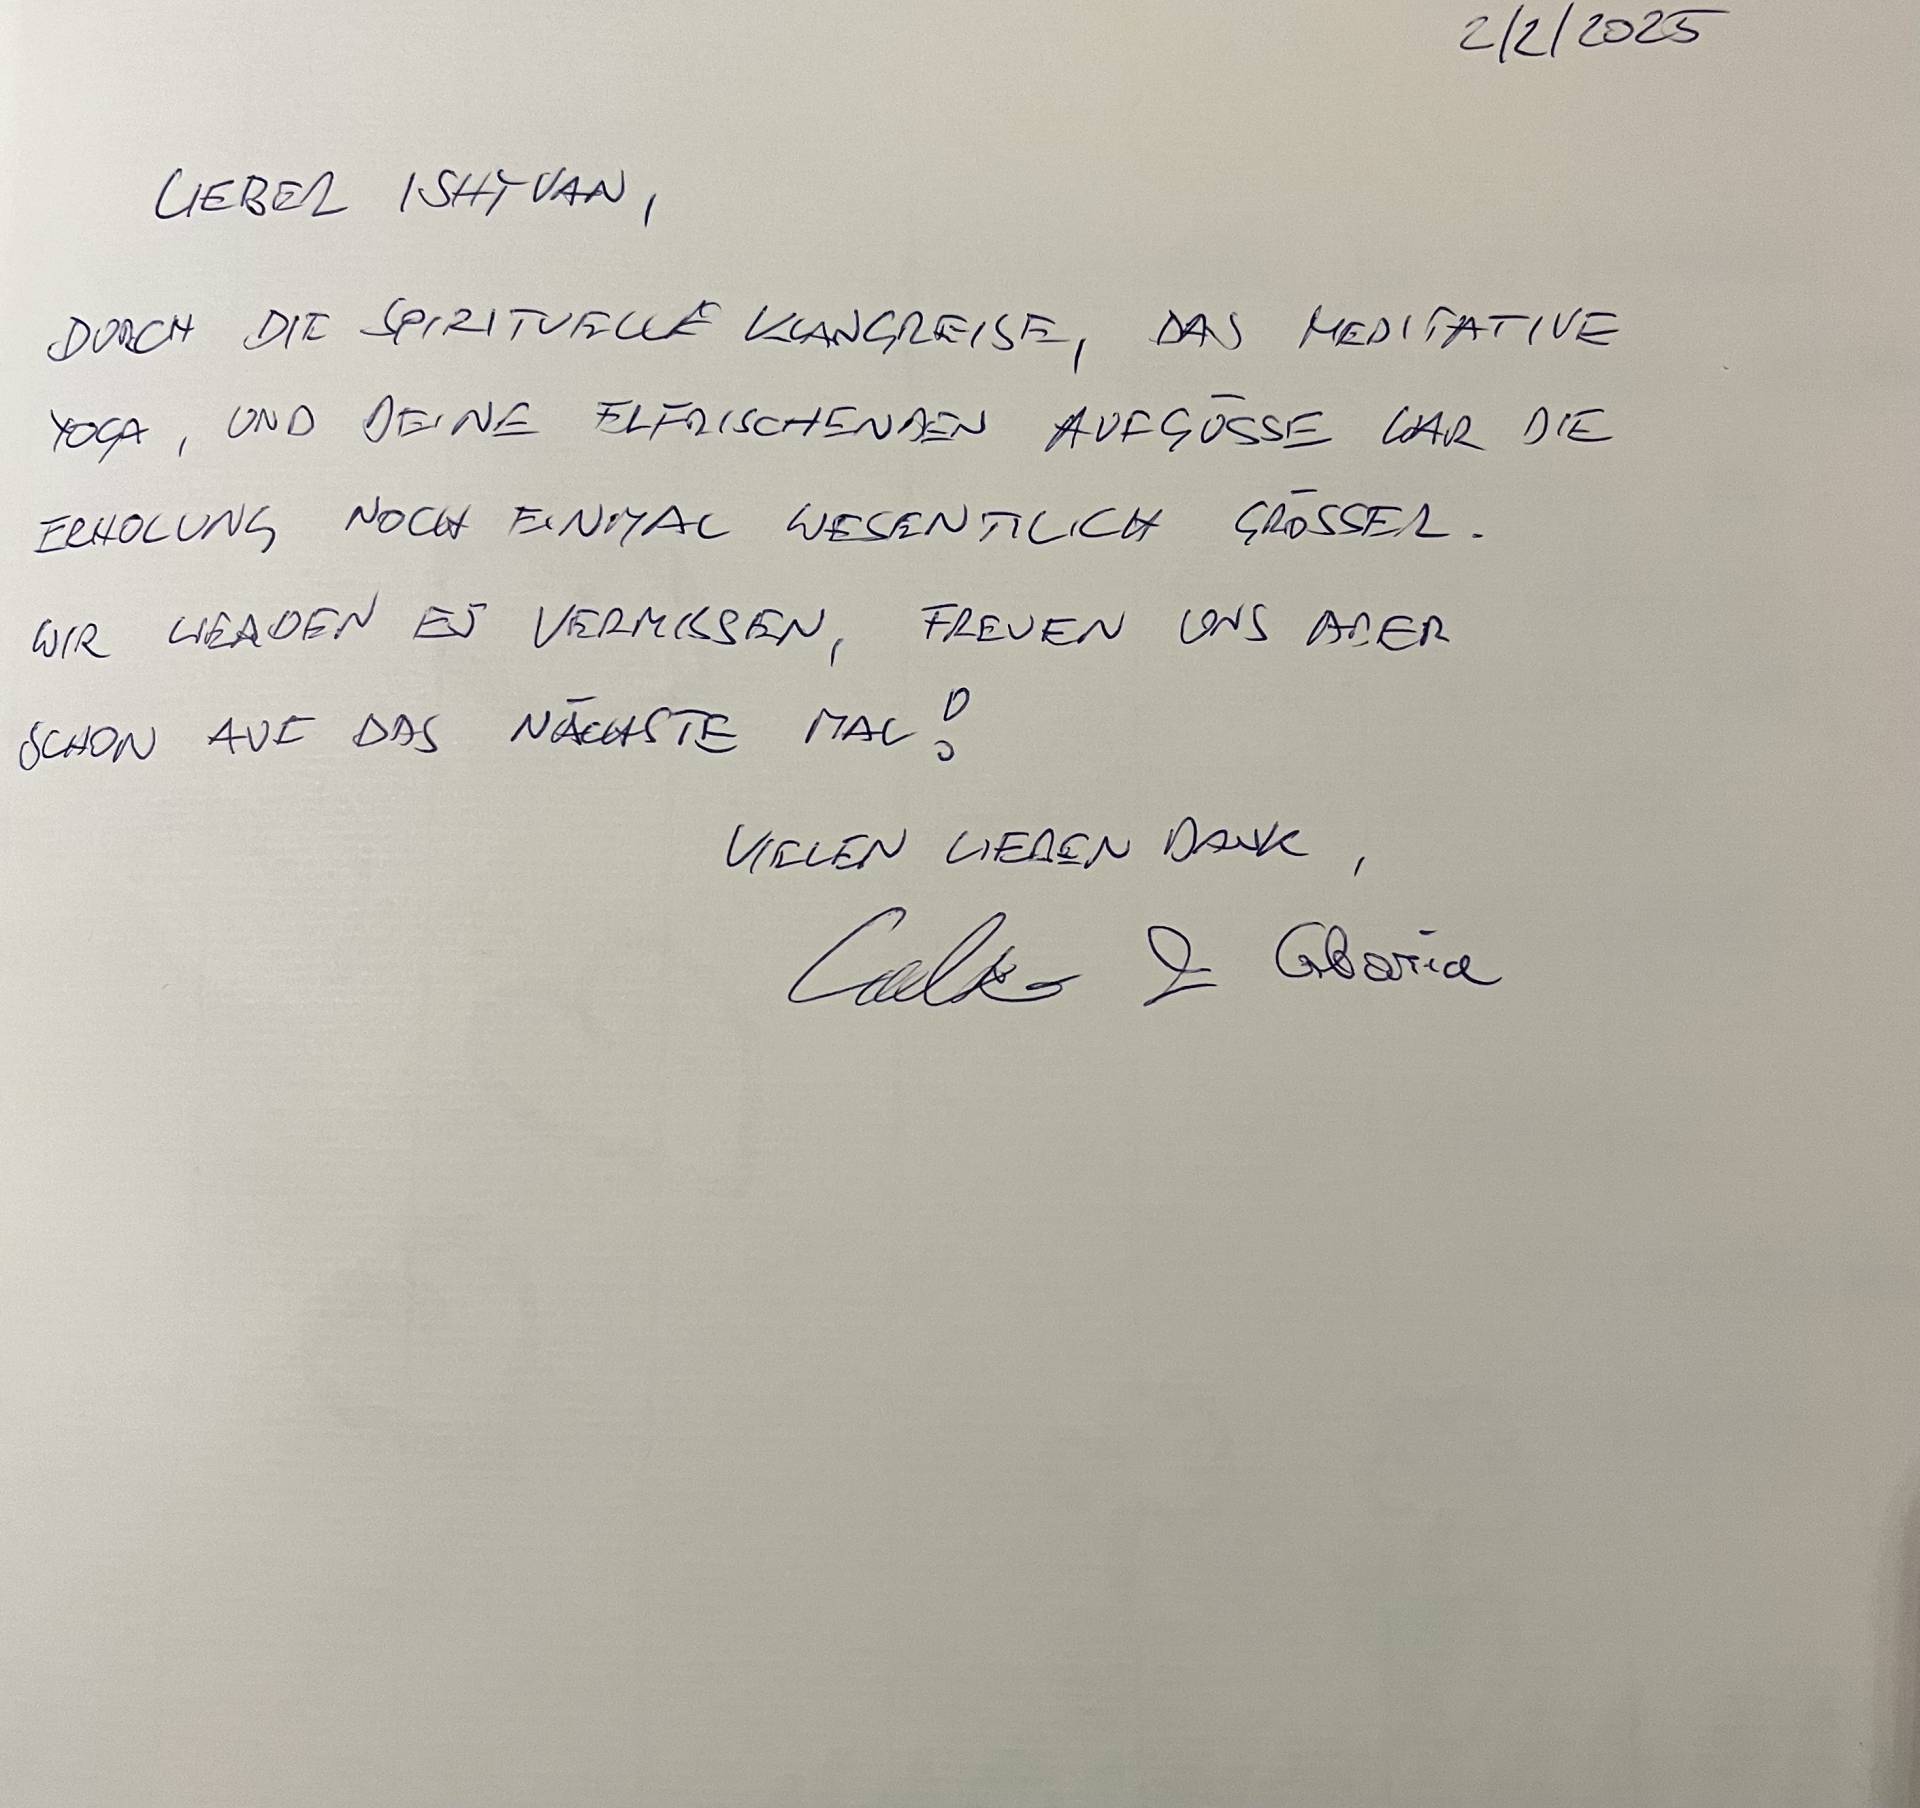 2/2/2025
LIEBER ISHTVAN,
DURCH DIE SPIRITUELLE KLANGREISE, DAS MEDITATIVE
YOGA, UND DEINE ERFRISCHENDEN AUFGÜSSE WAR DIE
ERHOLUNG NOCH EINMAL WESENTLICH GRÖSSER.
WIR WERDEN ES VERMISSEN, FREUEN UNS ABER
SCHON AUF DAS NÄCHSTE MAL!
VIELEN LIEBEN DANK,
& Gloria